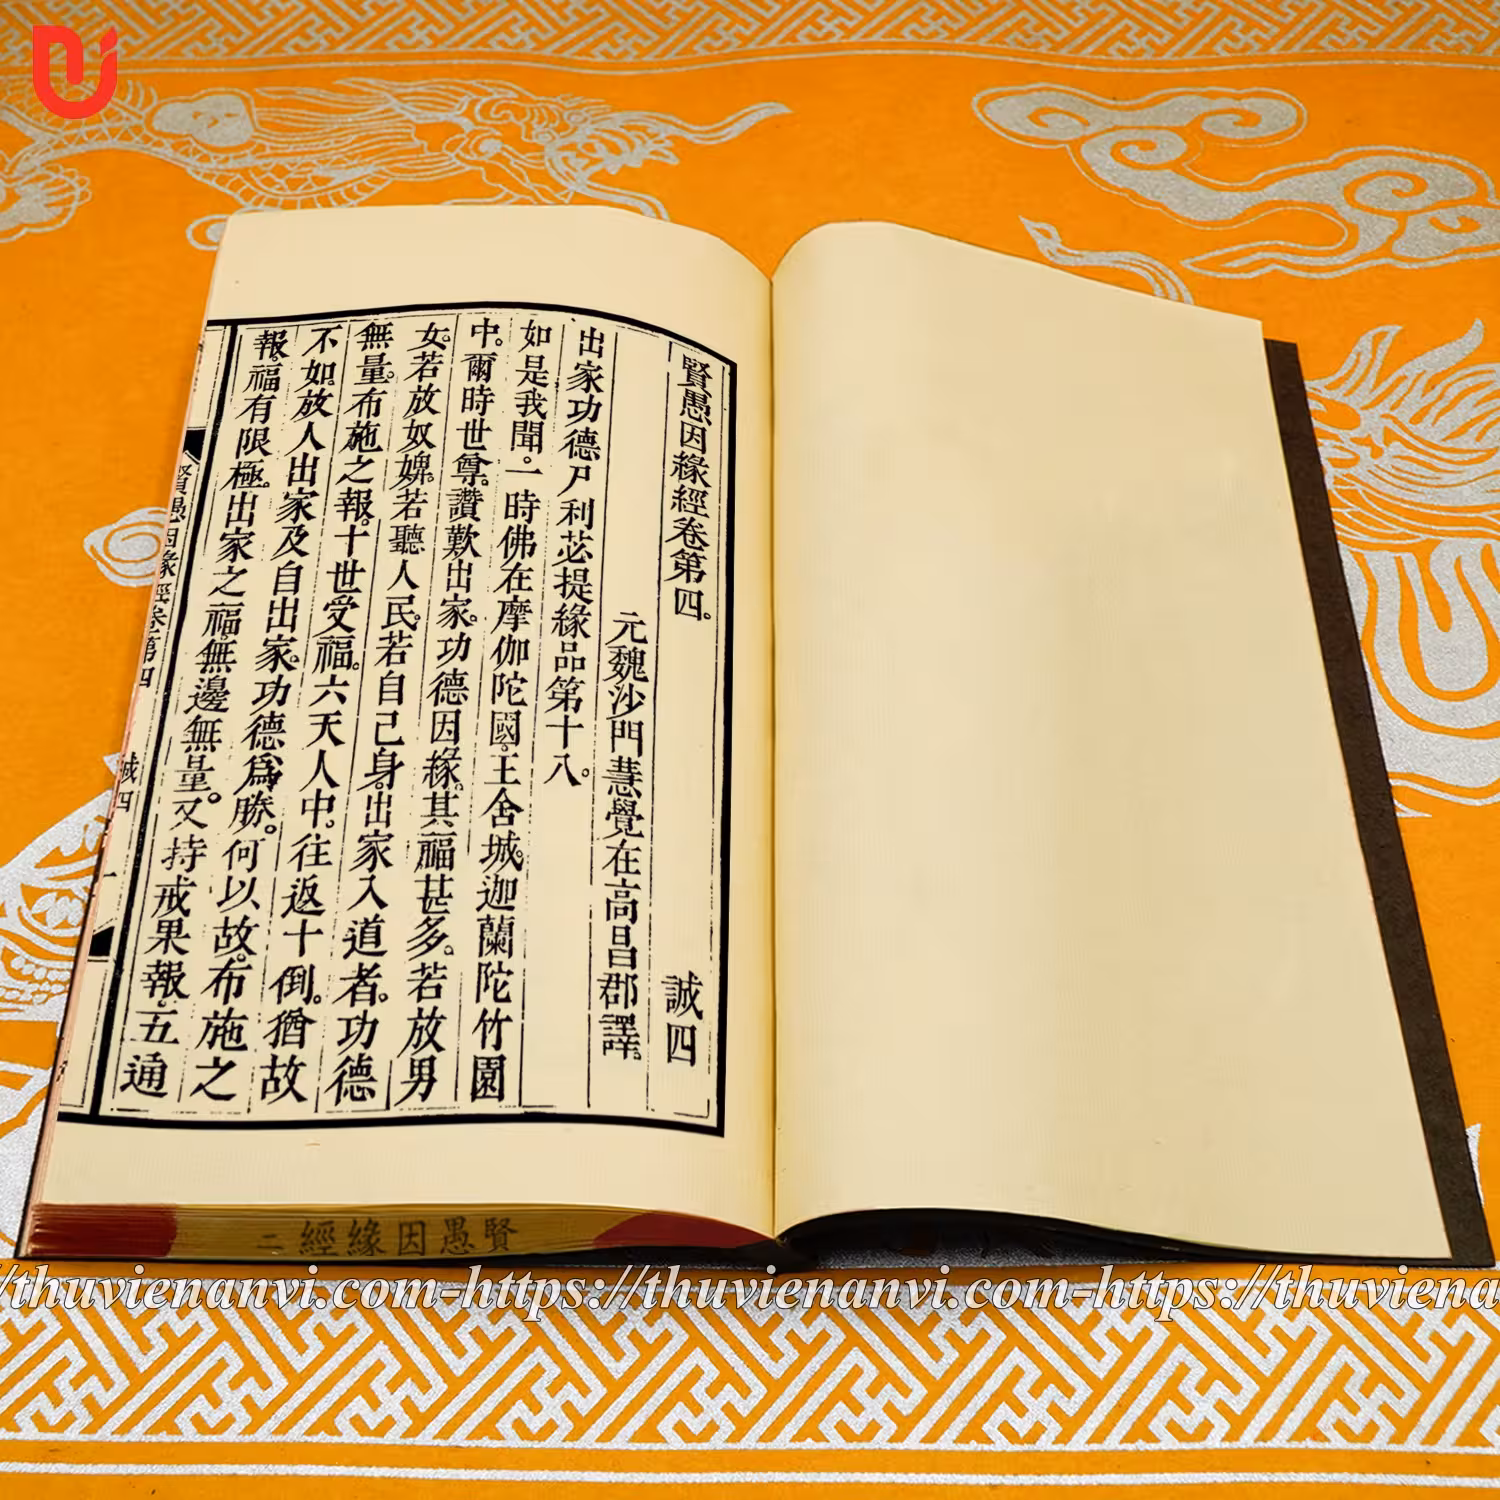 賢愚因緣經卷第四。 誠四
元魏沙門慧覺在高昌郡譯。
出家功德尸利苾提緣品第十八。
如是我聞。一時佛在摩伽陀國。王舍城。迦蘭陀竹園
中。爾時世尊。讚歎出家。功德因緣。其福甚多。若放男
女。若放奴婢。若聽人民。若自己身。出家入道者。功德
無量。布施之報。十世受福。六天人中。往返十倒。猶故
不如。放人出家及自出家。功德爲勝。何以故。布施之
報。福有限極。出家之福。無邊無量。又持戒果報。五通
賢愚因緣經卷第四 誠四 一
賢愚因緣經 二
//thuvienanvi.com-https://thuvienanvi.com-https://thuviena